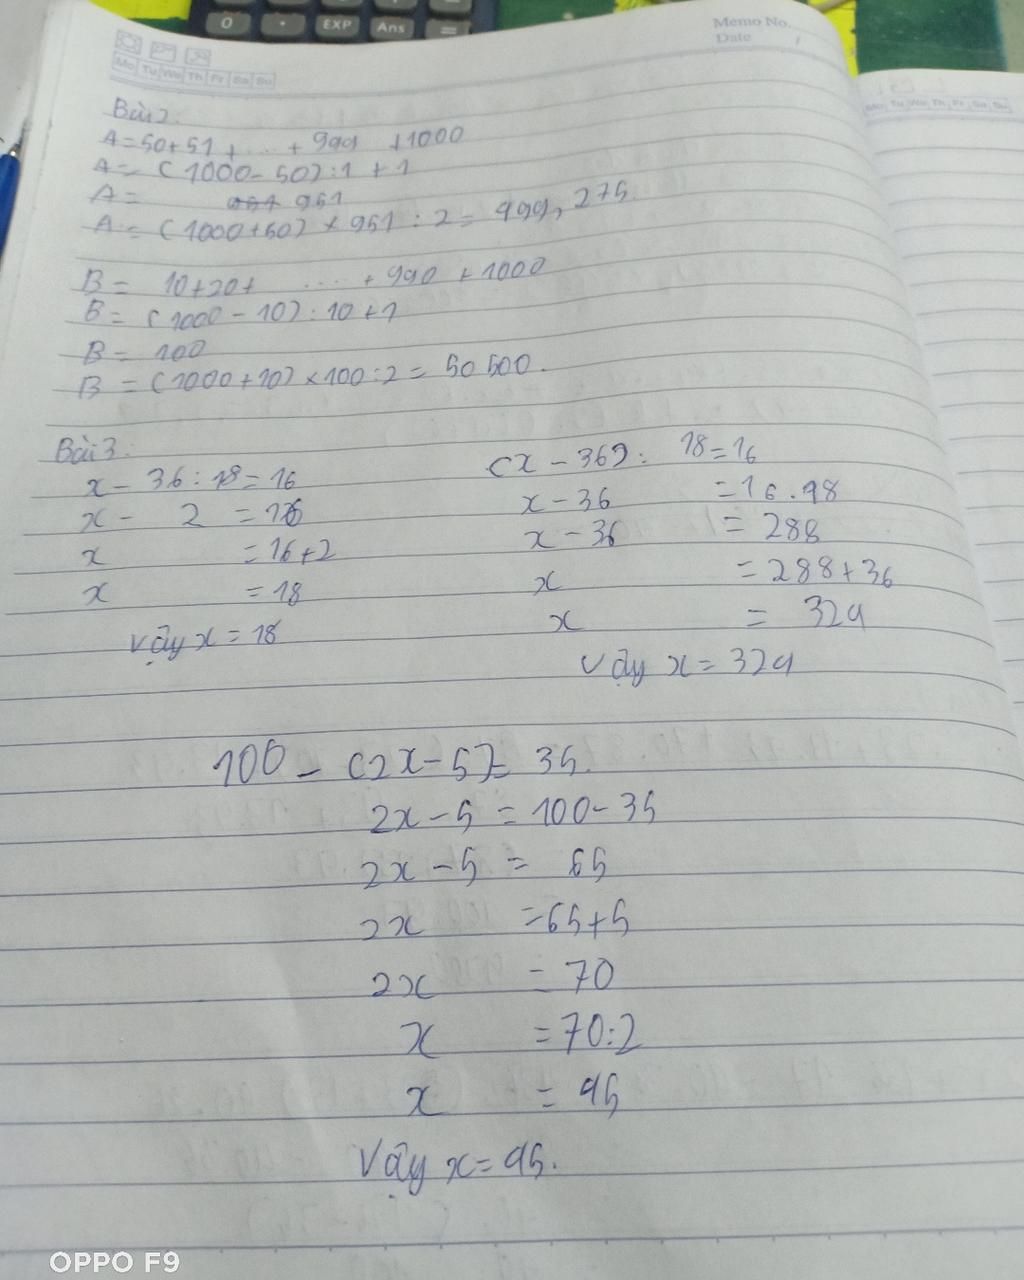 0 · EXP Ans =
Memo No.
Date /
Mo Tu We Th Fr Sa Su
Mo Tu We Th Fr Sa Su
Bài 2:
A = 50 + 51 + ... + 999 + 1000
A = (1000 - 50) : 1 + 1
A = 951
A = (1000 + 50) × 951 : 2 = 499,275.
B = 10 + 20 + ..... + 990 + 1000
B = (1000 - 10) : 10 + 1
B = 100
B = (1000 + 10) × 100 : 2 = 50 500.
Bài 3:
x - 36 : 18 = 16
x - 2 = 16
x = 16 + 2
x = 18
Vậy x = 18
(x - 36) : 18 = 16
x - 36 = 16 . 18
x - 36 = 288
x = 288 + 36
x = 324
Vậy x = 324
100 - (2x - 5) = 35.
2x - 5 = 100 - 35
2x - 5 = 65
2x = 65 + 5
2x = 70
x = 70 : 2
x = 45
Vậy x = 45.
OPPO F9